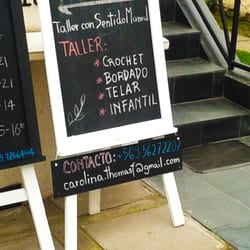 Taller con Sentido Manual
TALLER:
* CROCHET
* BORDADO
* TELAR
* INFANTIL
CONTACTO: +56956272207
carolina.thomast@gmail.com
-21
-14
-21
5-16:00